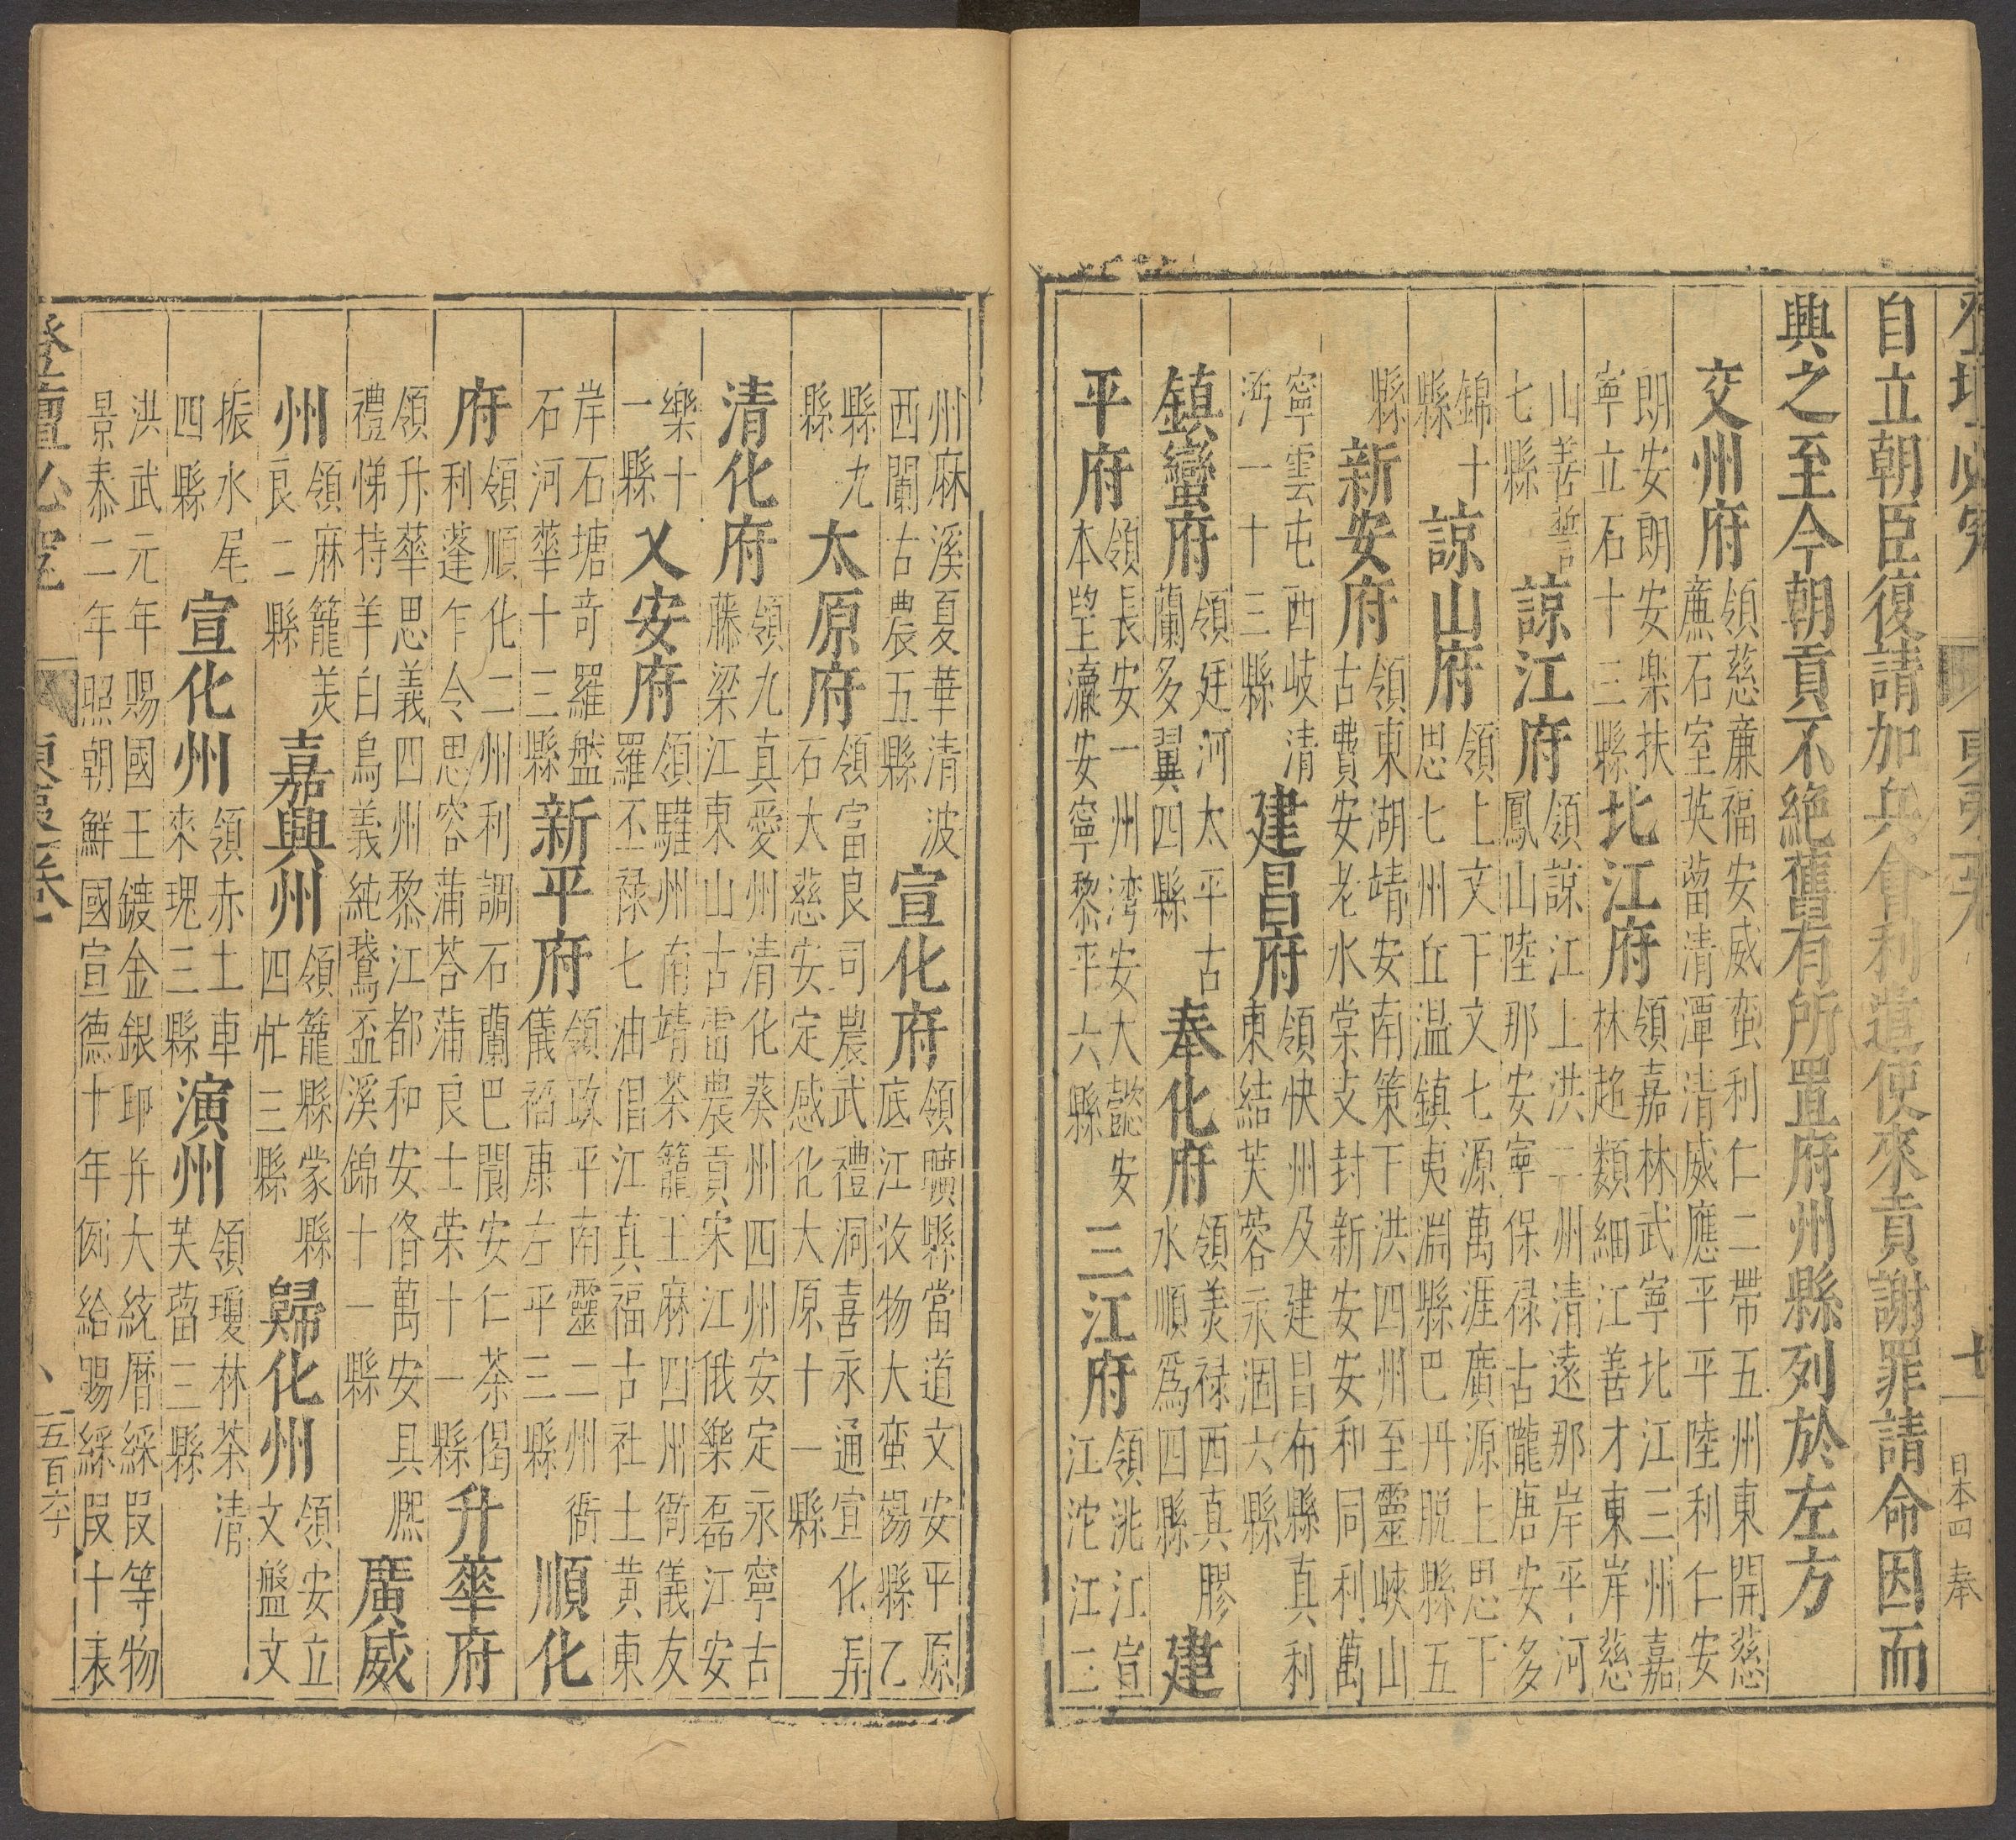 日本四 奉
自立朝臣復請加兵會利遣使來貢謝罪請命因而
興之至今朝貢不絕舊有所置府州縣列於左方
交州府 領慈廉福安威蛮利仁二帶五州東開慈蔗石室英蕾清潭清威應平平陸利仁安
朗安朗安樂扶寧立石十三縣 北江府 領嘉林武寧北江三州嘉林超類細江善才東岸慈
山善誓七縣 諒江府 領諒江上洪二州清遠那岸平河鳳山陸那安寧保禄古隴唐安多
錦十縣 諒山府 領上文下文七源萬涯廣源上思下思七州丘温鎮夷淵縣巴丹脱縣五
縣 新安府 領東湖靖安南策下洪四州至靈峽山古費安老水棠支封新安安和同利萬
寧雲屯西岐清沔一十三縣 建昌府 領快州及建昌布縣真利東結芙蓉永涸六縣
鎮蠻府 領廷河太平古蘭多翼四縣 奉化府 領美禄西真膠水順為四縣 建
平府 領長安一州湾安大懿安本望瀛安寧黎平六縣 三江府 領洮江宣江沱江三
州麻溪夏華清波西闌古農五縣 宣化府 領曠縣當道文安平原底江收物大蛮楊縣乙
縣九縣 太原府 領富良司農武禮洞喜永通宣化弄石大慈安定感化大原十一縣
清化府 領九真愛州清化葵州四州安定永寧古藤梁江東山古雷農貢宋江俄樂磊江安
樂十一縣 乂安府 領驩州南靖茶籠王麻四州衙儀友羅丕禄七油倡江真福古社土黄東
岸石塘奇羅盤石河華十三縣 新平府 領政平南靈二州衙儀福康左平三縣 順化
府 領順化二州利調石蘭巴閬安仁茶偈利蓬乍令思容蒲苔蒲良士荣十一縣 升華府
領升華思義四州黎江都和安俻萬安具熈禮悌持羊白烏義純鵞盃溪錦十一縣 廣威
州 領麻籠美良二縣 嘉興州 領籠縣蒙縣四忙三縣 歸化州 領安立文盤文
振水尾四縣 宣化州 領赤土車來瑰三縣 演州 領瓊林茶清芙蕾三縣
洪武元年賜國王鍍金銀印并大統曆綵叚等物景泰二年照朝鮮國宣德十年例給賜綵叚十表
登壇必究 東夷卷 五百六十